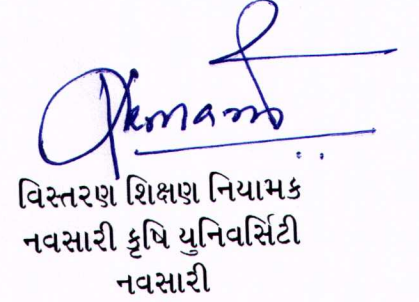 વિસ્તરણ શિક્ષણ નિયામક
નવસારી કૃષિ યુનિવર્સિટી
નવસારી